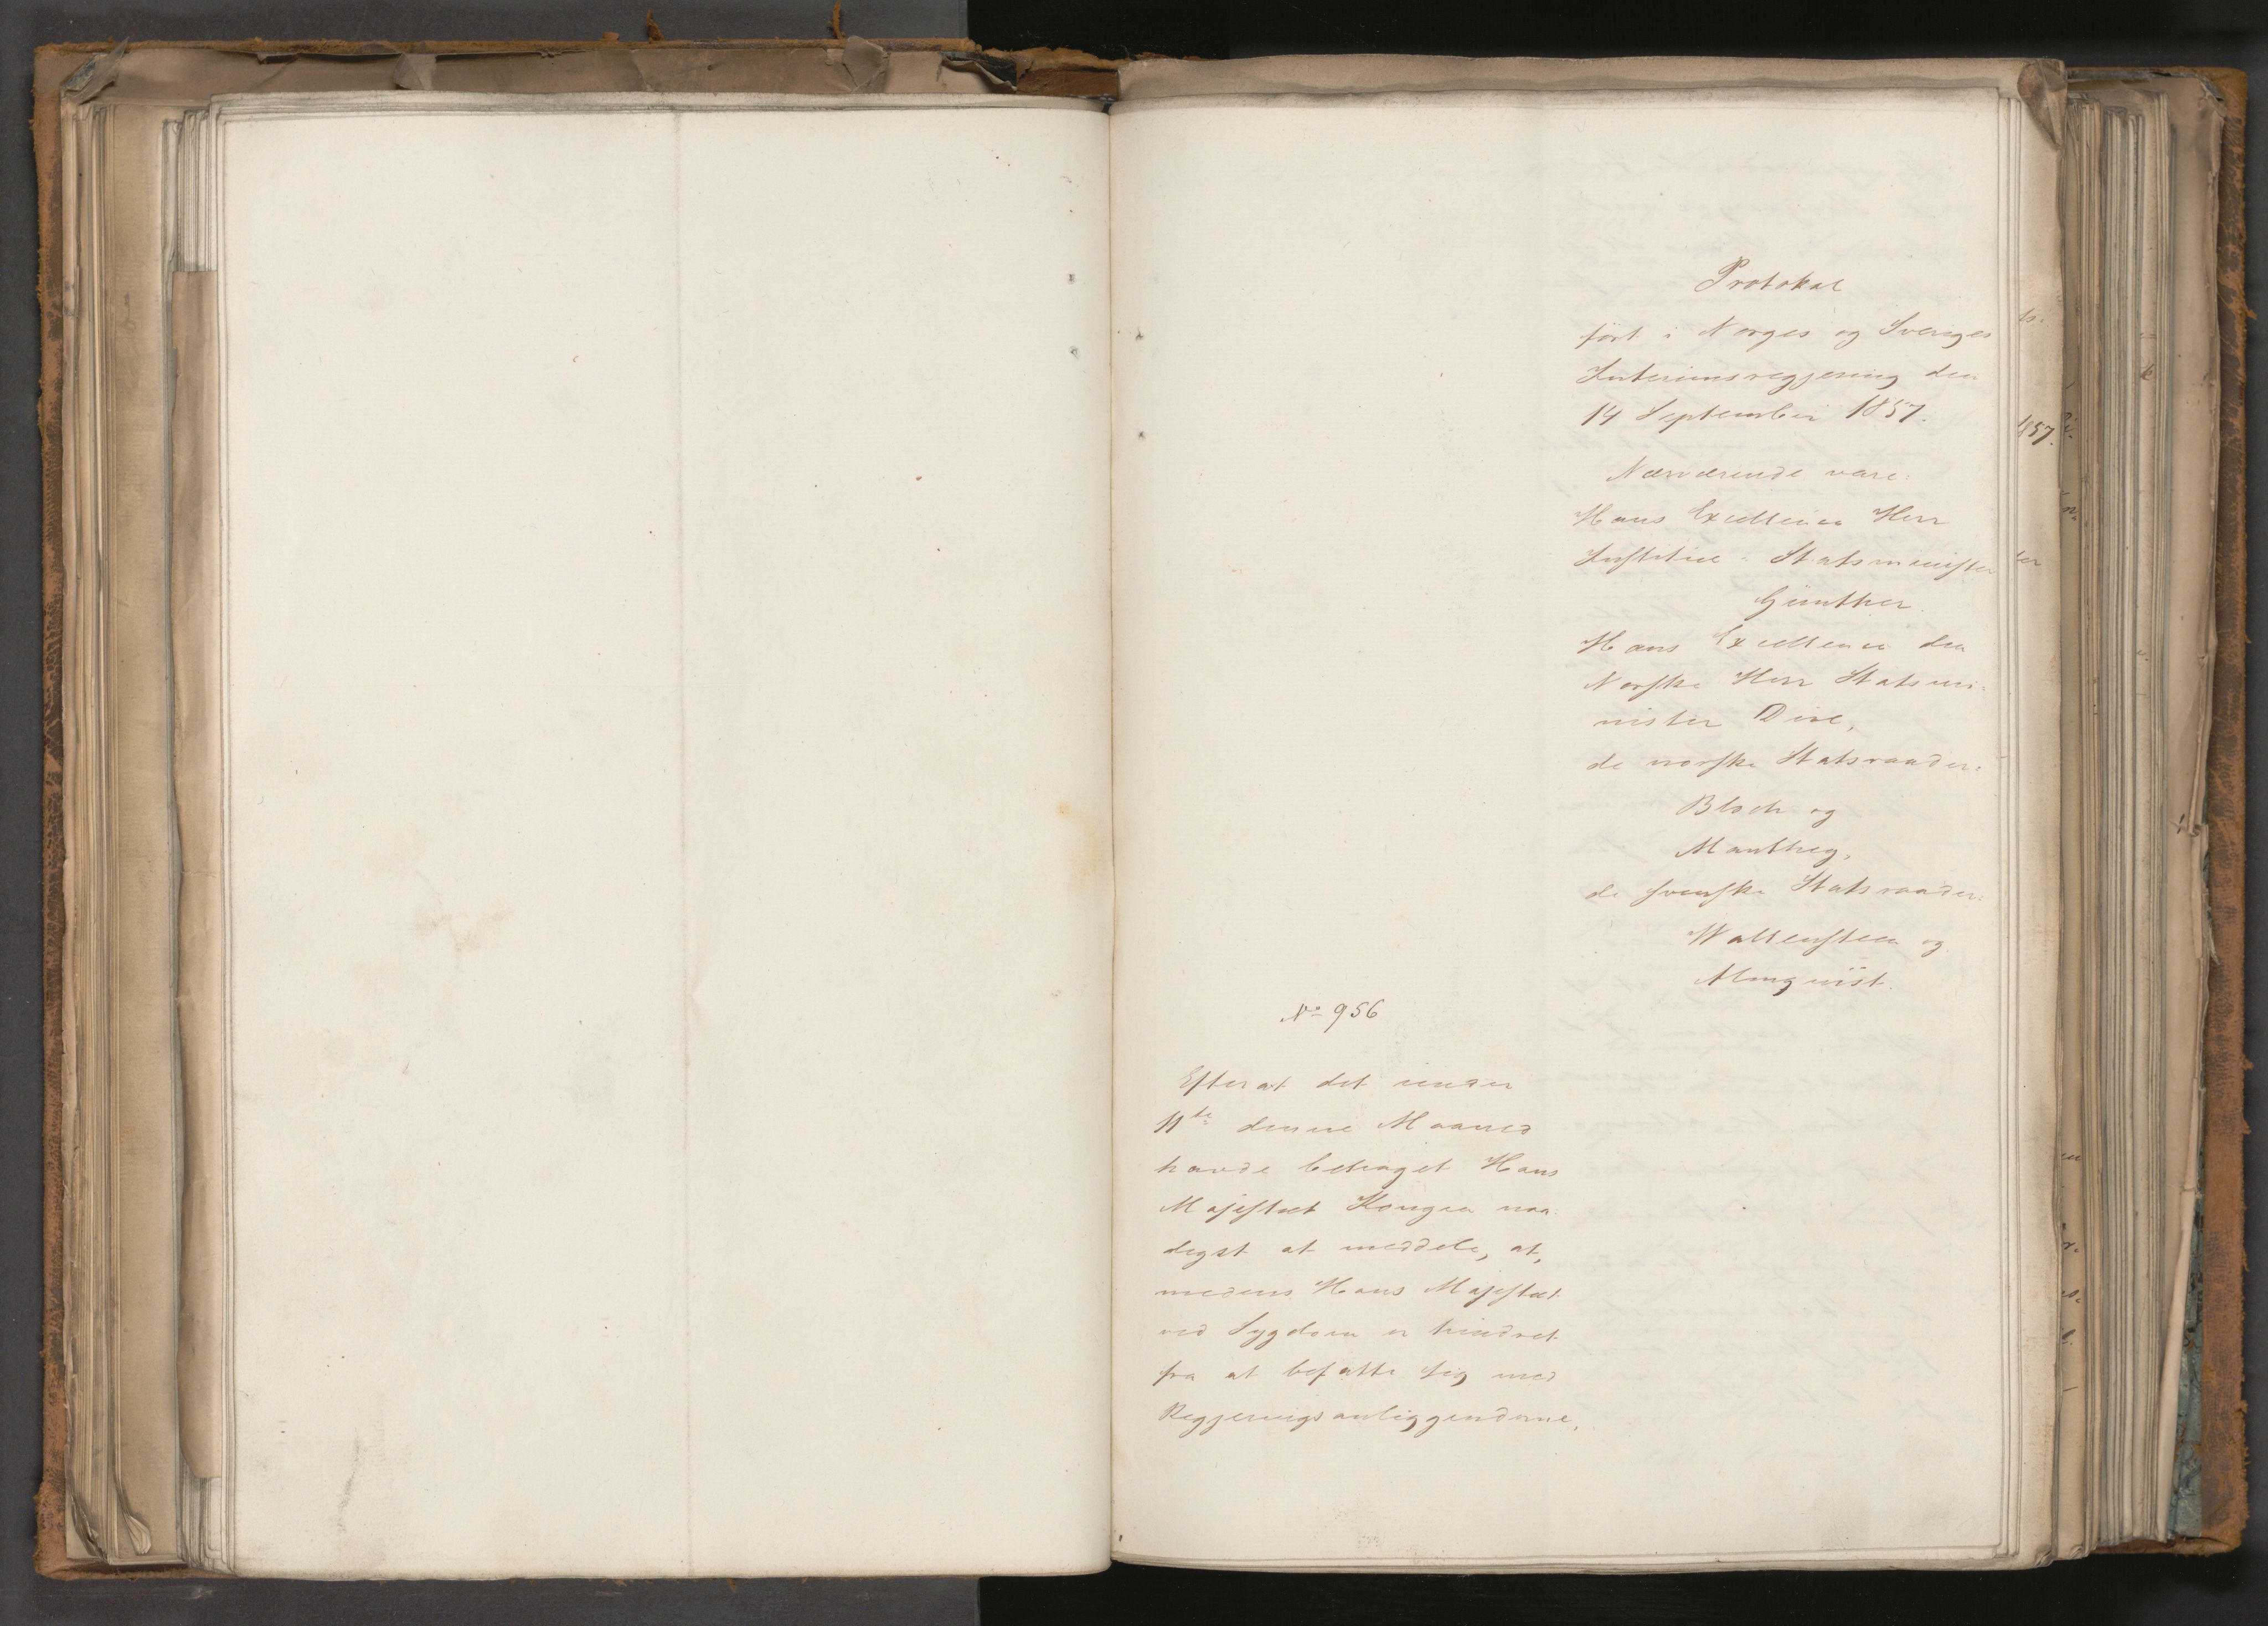 Protokol
ført i Norges og Sveriges
Interimsregjering den
14 September 1857.
Nærværende vare:
Hans Excellence Herr
Justitie-Statsminister
Günther.
Hans Excellence den
Norske Herr Statsmi-
nister Due,
de norske Statsraader:
Bloch og
Manthey,
de svenske Statsraader:
Wallensteen og
Almqvist.
No 956
Efterat det under
11te denne Maaned
havde behaget Hans
Majestæt Kongen naa-
digst at meddele, at,
medens Hans Majestæt
ved Sygdom er hindret
fra at befatte sig med
Regjeringsanliggenderne,
1857.